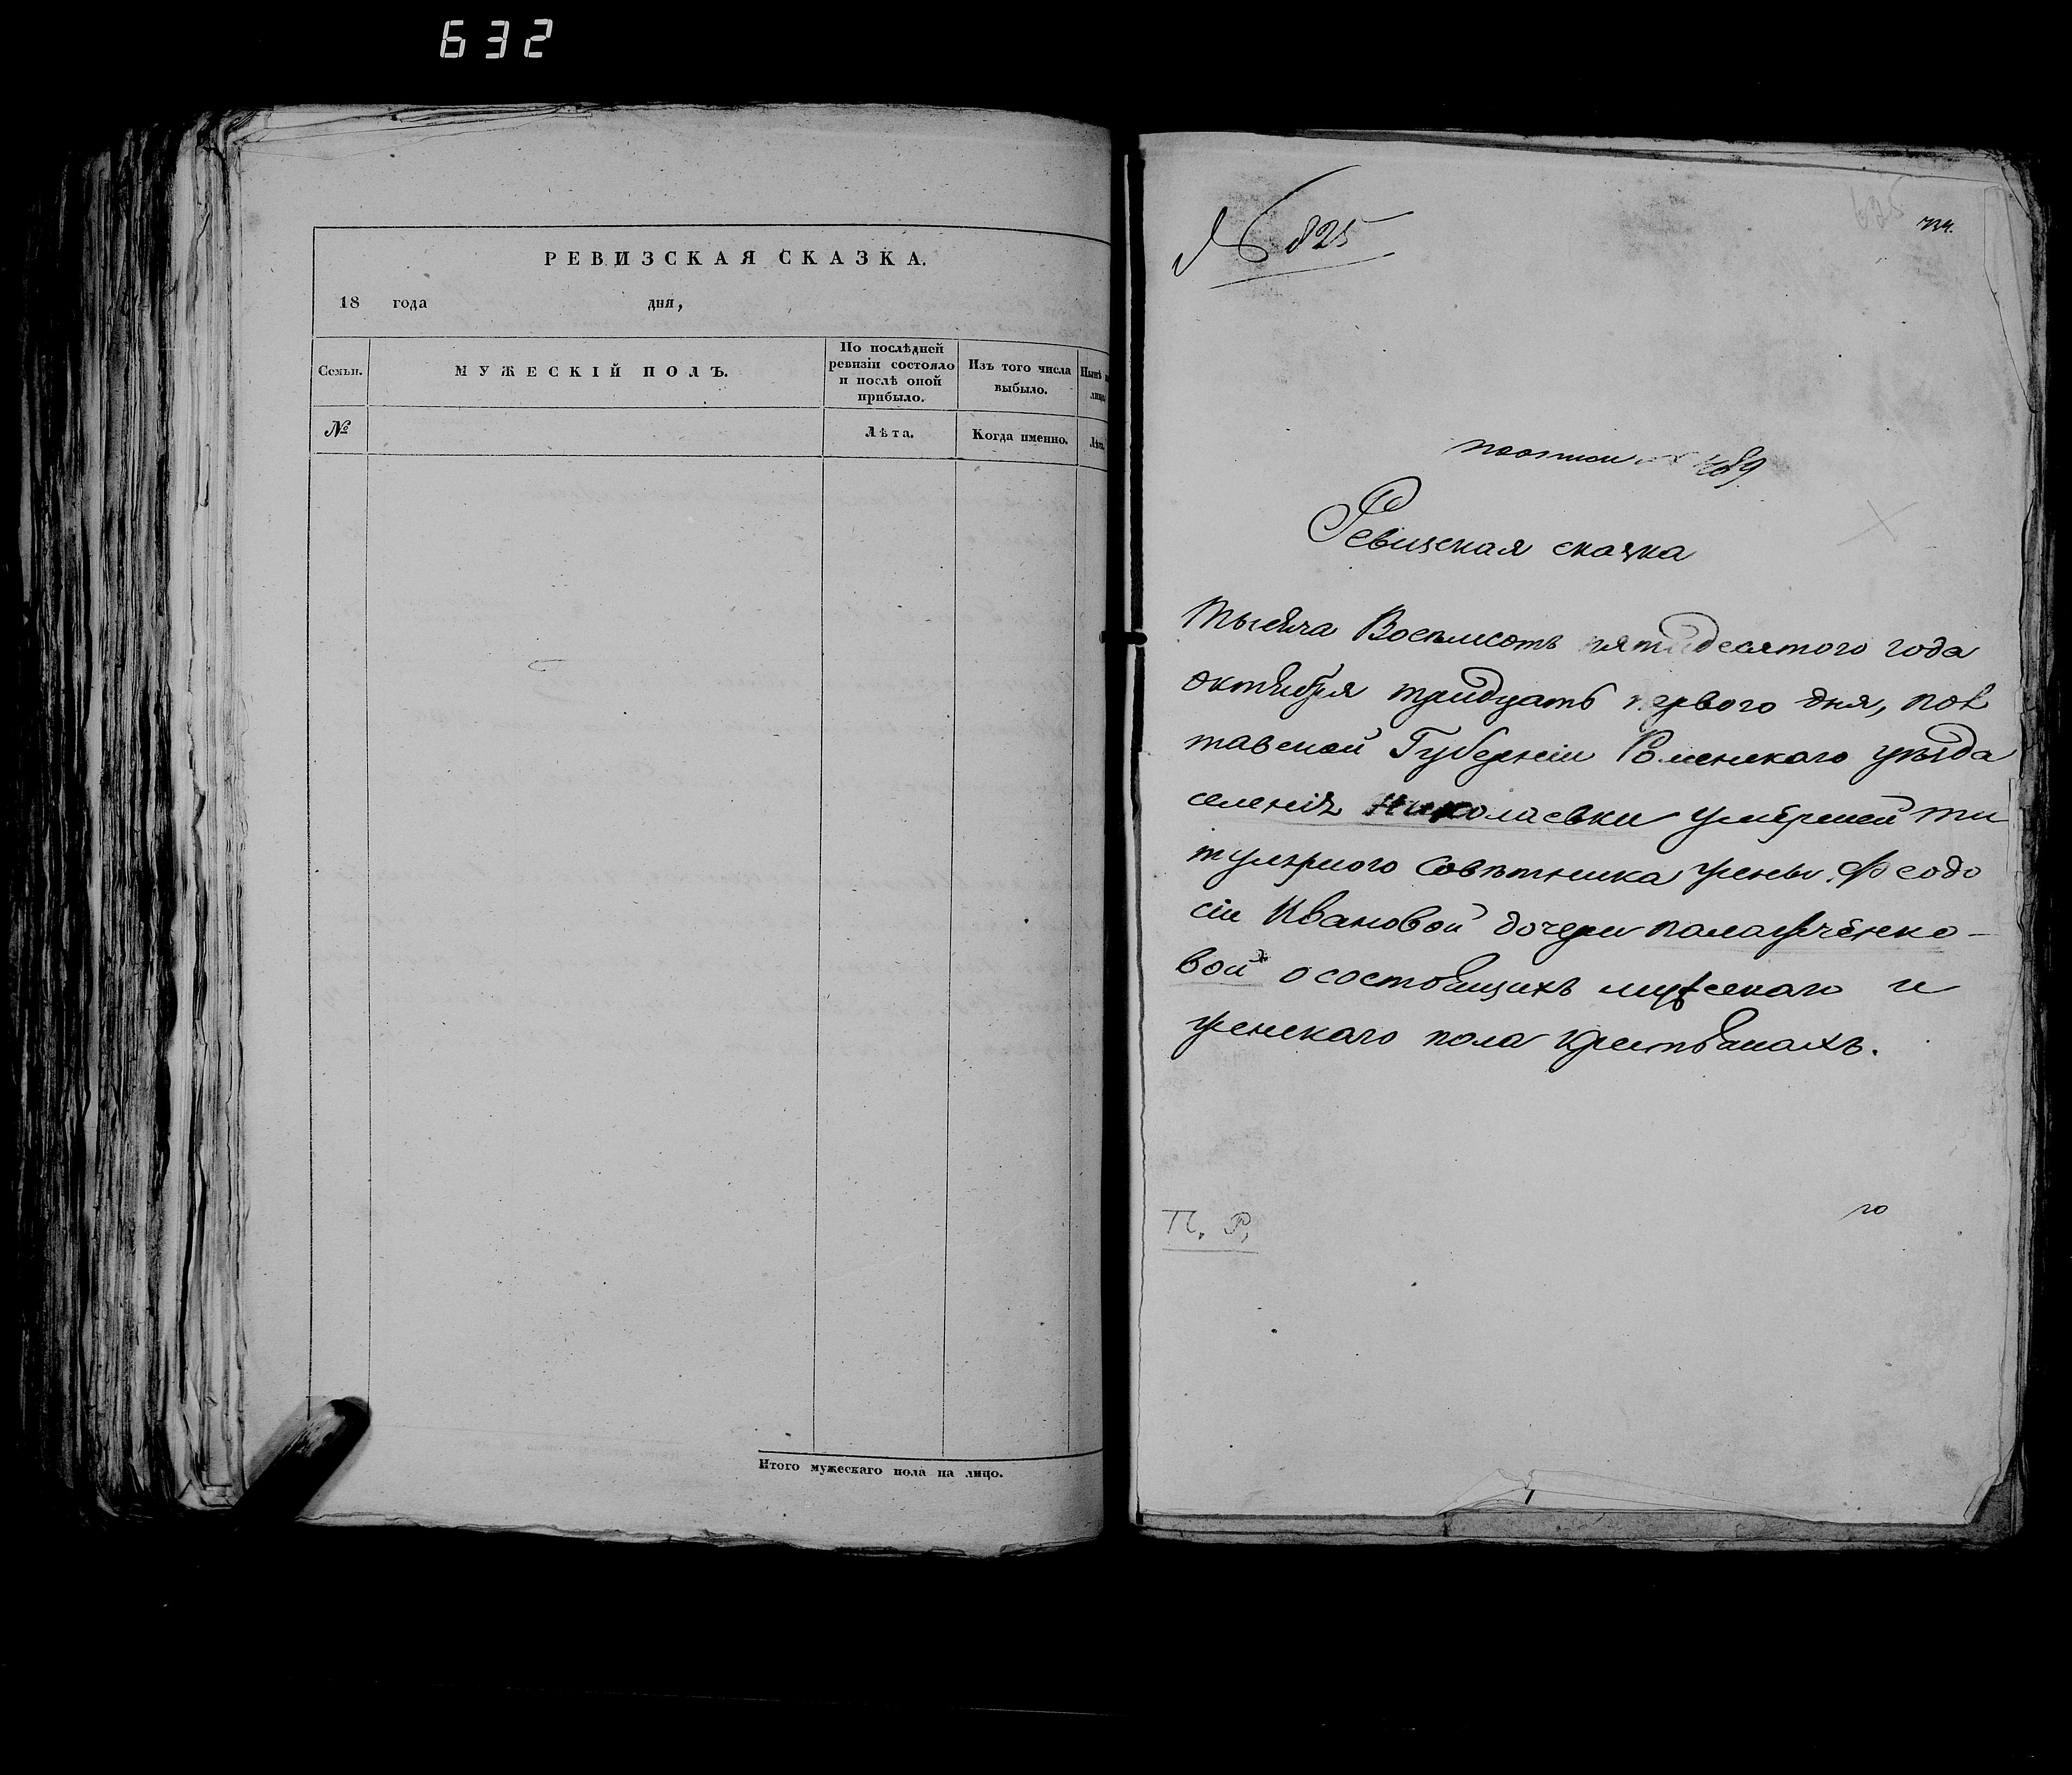 632
РЕВИЗСКАЯ СКАЗКА.
18 года дня,
Семьи.
МУЖЕСКІЙ ПОЛЪ.
По послѣдней
ревизіи состояло
и послѣ оной
прибыло.
Изъ того числа
выбыло.
Нынѣ
лицо
№
Лѣта.
Когда именно.
Лѣта
Итого мужескаго пола на лицо.
№ 825
625
по описи № 489
Ревизская сказка
Тысяча Восемьсотъ пятидесятого года
октября тридцать первого дня, Пол
тавской Губерніи Роменского уѣзда
селенія Николаевки умершей ти
тулярного Совѣтника жены Феодо
сіи Ивановой дочери
вой о состоящихъ мужескаго и
женскаго пола крестьянахъ.
П. Р.